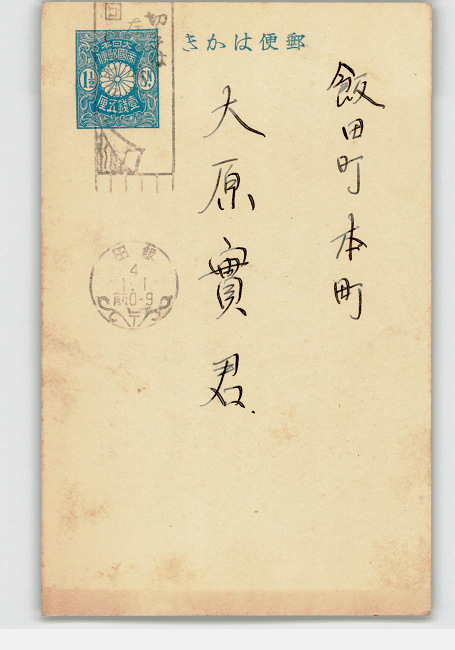 郵便はかき
飯田町本町
大原實君
大日本
帝國郵便
1½ SN
壹銭五厘
飯田
4
1.1
前0-9